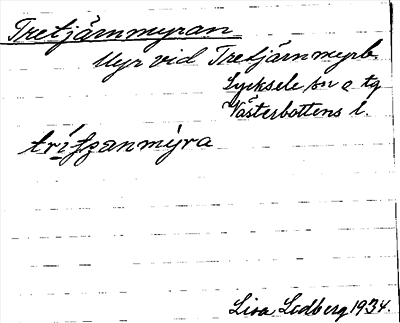 Tretjärnmyran
Myr vid Tretjärnmyrb.
Lycksele sn o tg
Västerbottens l.
trítjanmýra
Lisa Lidberg 1934.